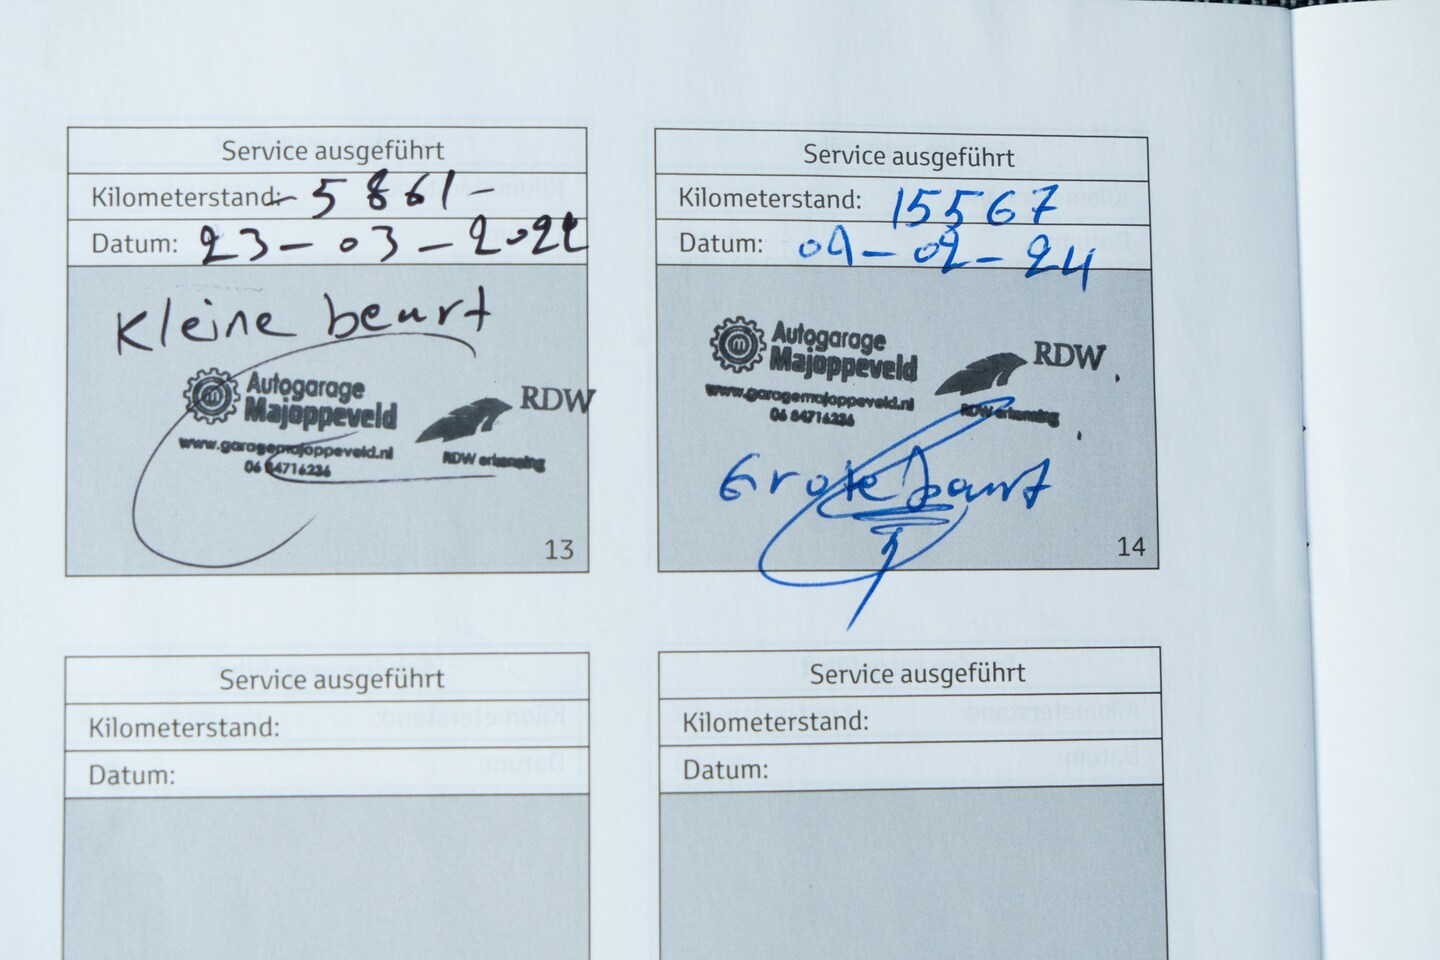 Service ausgeführt
Kilometerstand: - 5861 -
Datum: 23-03-2022
Kleine beurt
Autogarage
Majoppeveld
www.garagemajoppeveld.nl
06 84716236
RDW
RDW erkenning
13
Service ausgeführt
Kilometerstand: 15567
Datum: 09-02-24
Autogarage
Majoppeveld
www.garagemajoppeveld.nl
06 84716236
RDW
RDW erkenning
Grote beurt
14
Service ausgeführt
Kilometerstand:
Datum:
Service ausgeführt
Kilometerstand:
Datum: